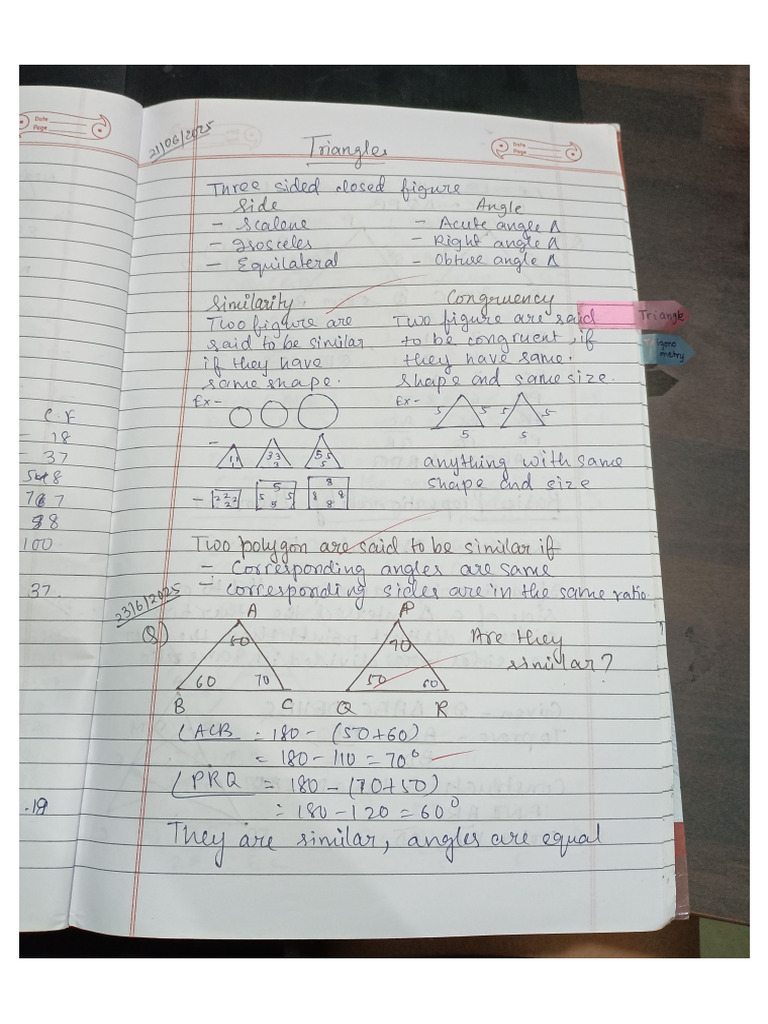 21/06/2025
Triangles
Date
Page
Date
Page
Three sided closed figure
Side Angle
- Scalene - Acute angle Δ
- Isosceles - Right angle Δ
- Equilateral - Obtuse angle Δ
Similarity Congruency
Two figure are Two figure are said
said to be similar to be congruent, if
if they have they have same
same shape. shape and same size.
Triangle
Ex- Ex-
5 5 5 5
5 5
- 1 1 1 3 3 3 5 5 5
anything with same
shape and size
- 2 2 2 2 5 5 5 5 8 8 8 8
Two polygon are said to be similar if
- Corresponding angles are same
- corresponding sides are in the same ratio.
23/6/2025
Q) A P
50 70 Are they
similar?
60 70 50 60
B C Q R
∠ACB = 180 - (50+60)
= 180 - 110 = 70°
∠PRQ = 180 - (70+50)
= 180 - 120 = 60°
They are similar, angles are equal
C.F
18
37
67
88
100
37.
.19